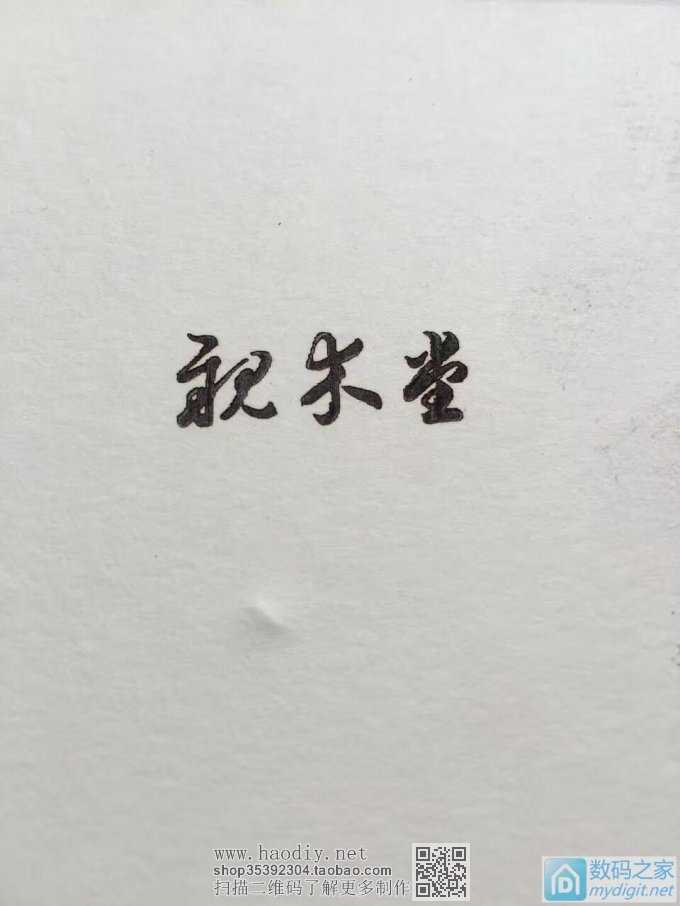 親木堂
www.haodiy.net
shop35392304.taobao.com
扫描二维码了解更多制作
数码之家
mydigit.net